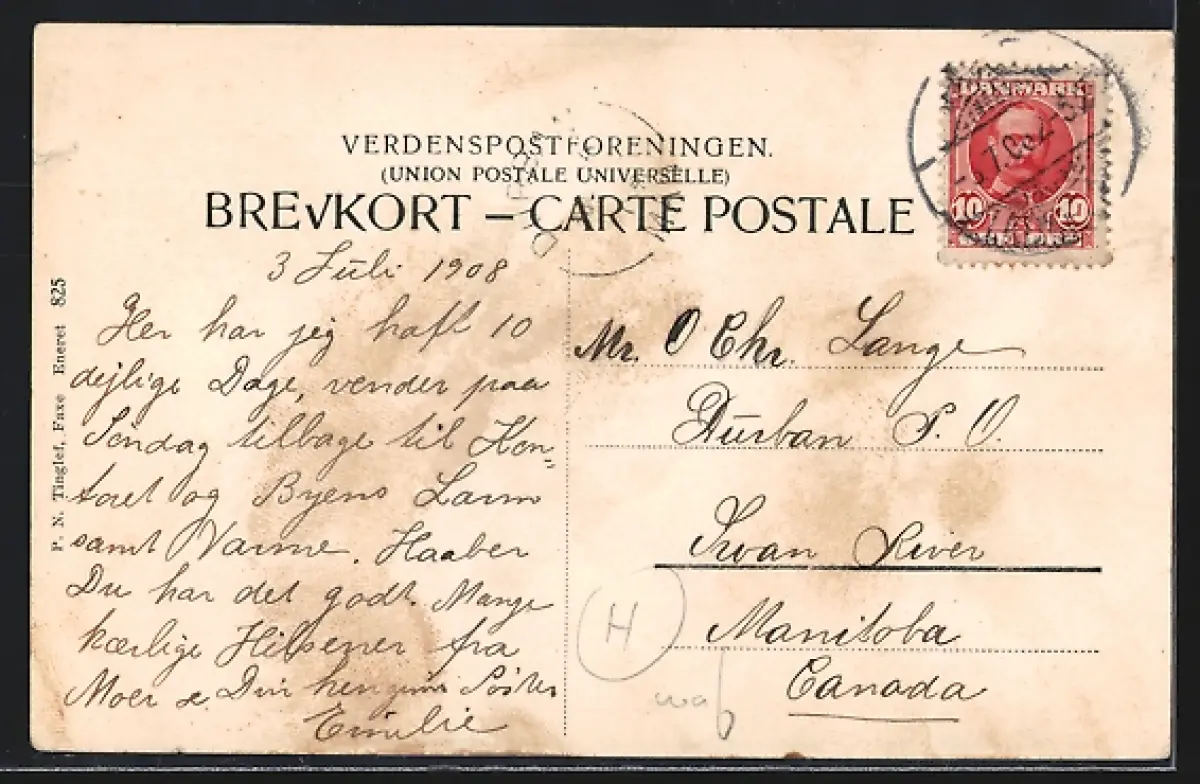 VERDENSPOSTFORENINGEN.
(UNION POSTALE UNIVERSELLE)
BREVKORT – CARTE POSTALE
DANMARK
10 10
3 Juli 1908
Her har jeg haft 10
dejlige Dage, vender paa
Søndag tilbage til Kon=
toret og Byens Larm
samt Varme. Haaber
Du har det godt. Mange
kærlige Hilsener fra
Moer & Din hengivne Søster
Emilie
Mr. O Chr. Lange
Durban P. O.
Swan River
Manitoba
Canada
H
P. N. Tinglef, Faxe Eneret 825